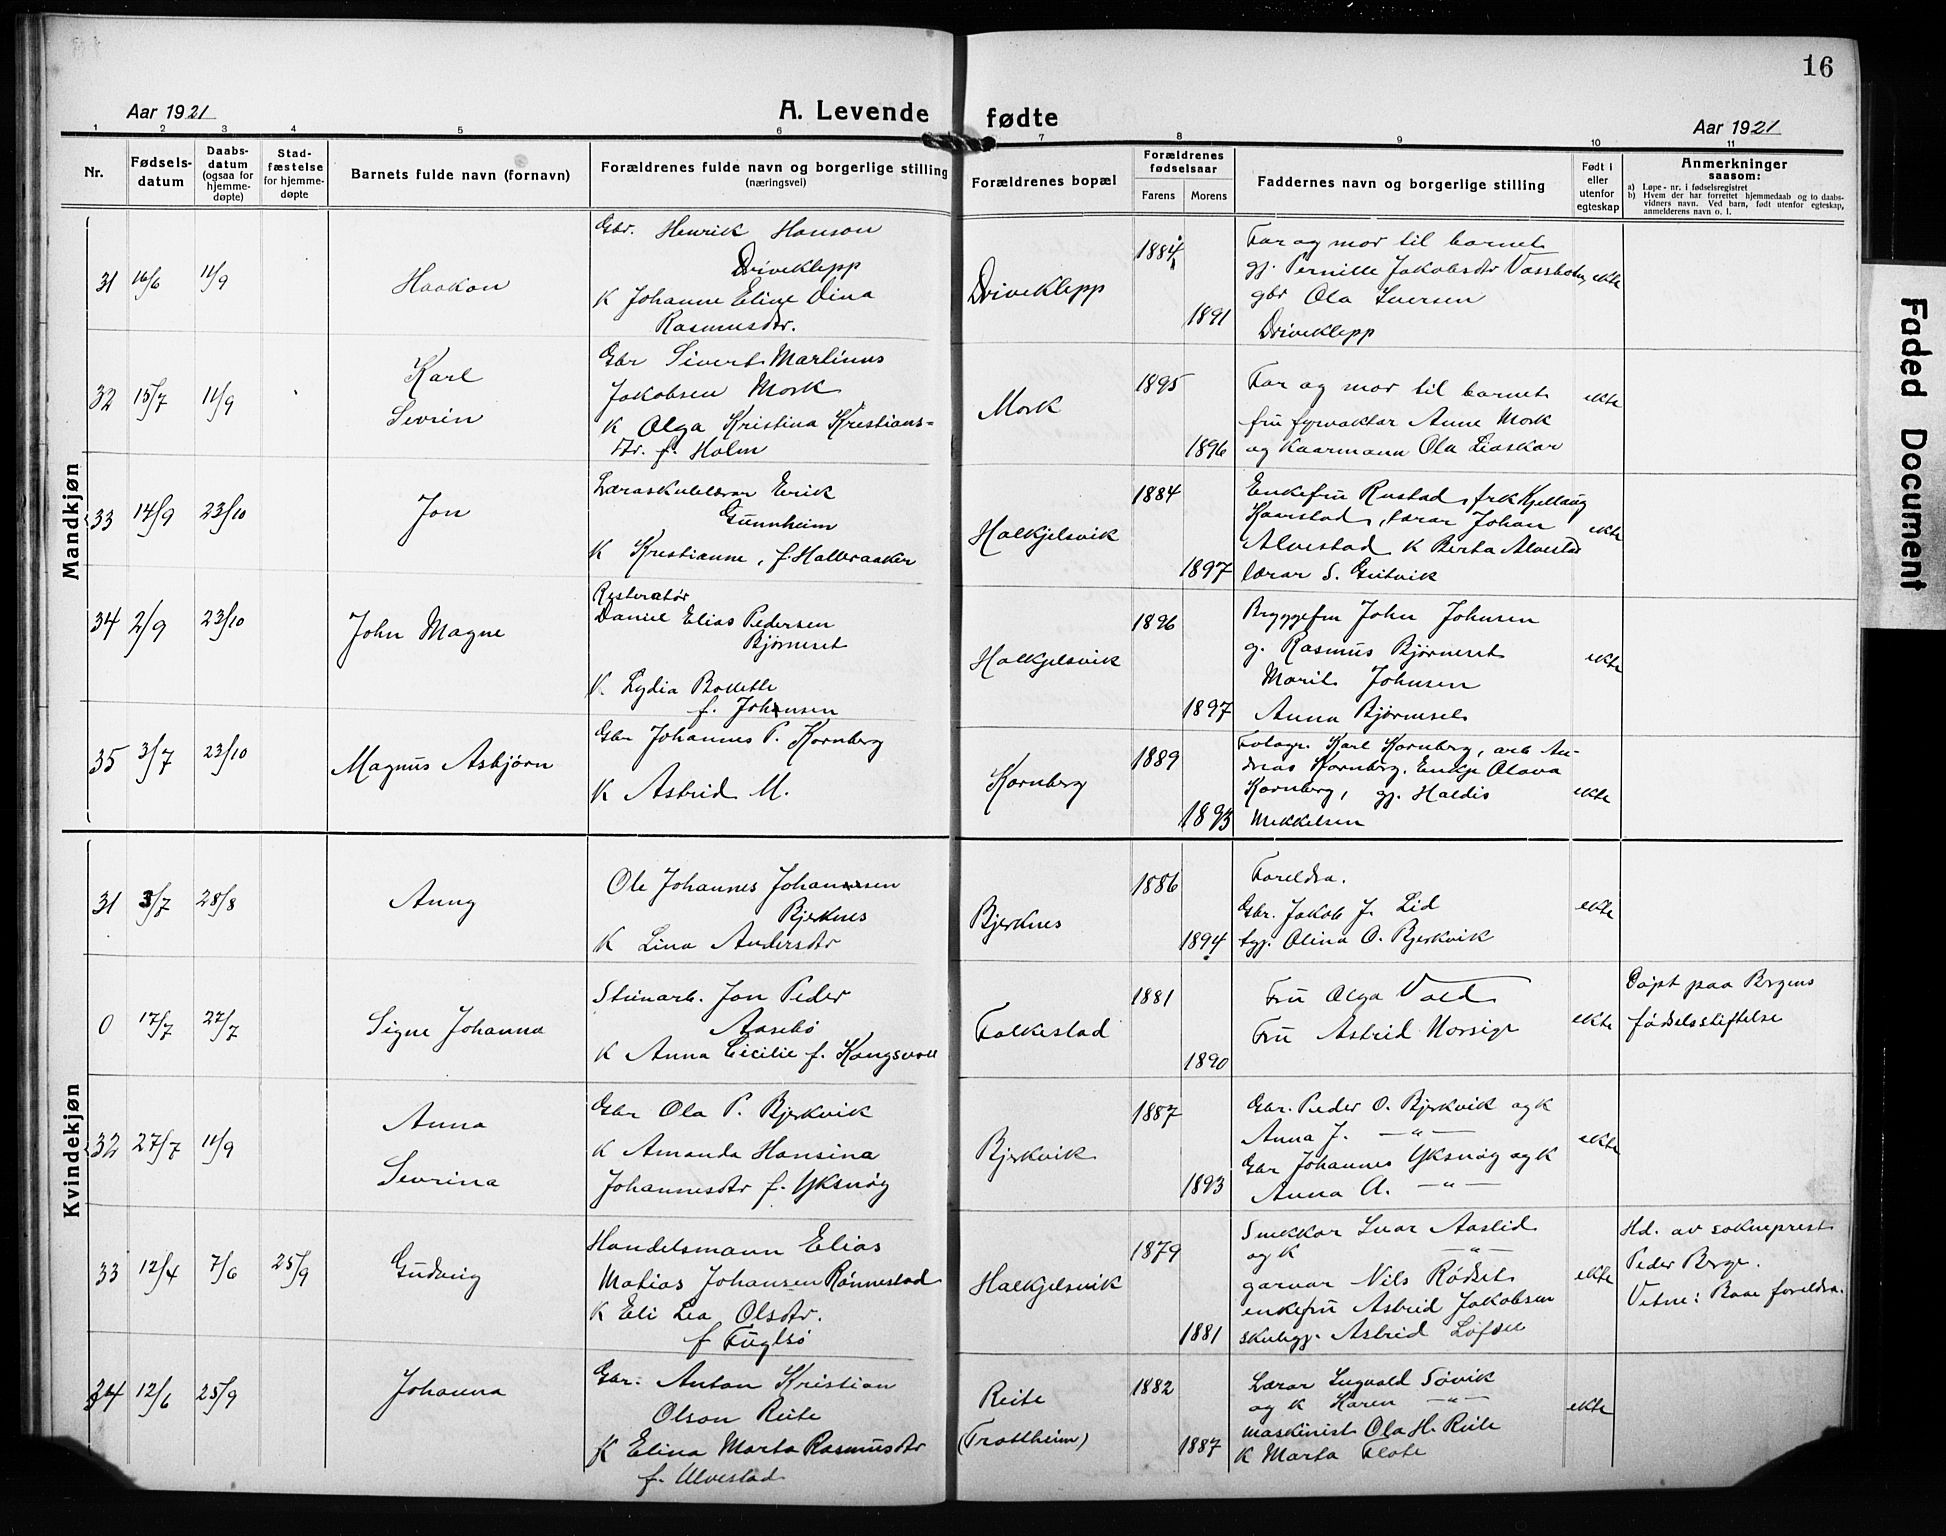 16
Aar 1921
A. Levende fødte
Aar 1921
1 2 3 4 5 6 7 8 9 10 11
Nr.
Fødsels-
datum
Daabs-
datum
(ogsaa for
hjemme-
døpte)
Stad-
fæstelse
for hjemme-
døpte
Barnets fulde navn (fornavn)
Forældrenes fulde navn og borgerlige stilling
(næringsvei)
Forældrenes bopæl
Forældrenes
fødselsaar
Farens
Morens
Faddernes navn og borgerlige stilling
Født i
eller
utenfor
egteskap
Anmerkninger
saasom:
a) Løpe-nr. i fødselsregistret
b) Hvem der har forrettet hjemmedaab og to daabs-
vidners navn. Ved barn, født utenfor egteskap,
anmelderens navn o. l.
Faded Document
Mandkjøn
31 16/6 11/9
Haakon
Gbr. Henrik Hanson
Driveklepp
K Johanne Eline Dina
Rasmusdtr.
Driveklepp
1884
1891
Far og mor til barnet
gj. Pernille Jakobsdtr Vassbotn,
gbr Ola Iversen
Driveklepp
ekte
32 15/7 11/9
Karl
Sevrin
Gbr Sivert Martinus
Jakobsen Mork
K Olga Kristina Kristians-
dtr. f. Holm
Mork
1895
1896
Far og mor til barnet
fru fyrvaktar Anne Mork
og kaarmann Ola Lioskar
ekte
33 14/9 23/10
Jon
Læraskulelærar Eirik
Gunnheim
K Kristianne, f. Halbraaker
Halkjelsvik
1884
1897
Enkefru Rustad, frk Kjellaug
Kaarstad, lærar Johan
Alvestad K Berta Alvestad
lærar S. Gutvik
ekte
34 2/9 23/10
John Magne
Resteratør
Daniel Elias Pedersen
Bjørneset
K. Lydia Bollette
f. Johnsen
Halkjelsvik
1896
1897
Bryggefm John Johnsen
g. Rasmus Bjørneset
Marit Johnsen
Anna Bjørneset
ekte
35 3/7 23/10
Magnus Asbjørn
Gbr Johannes P. Kornberg
K Astrid M.
Kornberg
1889
1893
Fotogr. Karl Kornberg, arb An-
dreas Kornberg. Enkje Olava
Kornberg, gj. Haldis
Mikkelsen
ekte
Kvindekjøn
31 3/7 28/8
Anny
Ole Johannes Johansen
Bjerknes
K Lina Andersdtr
Bjerknes
1886
1894
Foreldra.
Gbr. Jakob J. Lid
tyj. Olina O. Bjerkvik
ekte
0 17/7 27/7
Signe Johanna
Steinarb. Jon Peder
Aasebø
K Anna Cicilie f. Kongsvoll
Folkestad
1881
1890
Fru Olga Vold
Fru Astrid Norsige
ekte
Døpt paa Bergens
fødselsstiftelse
32 27/7 11/9
Anna
Sevrina
Gbr Ola P. Bjerkvik
K Amanda Hansina
Johannesdtr f. Yksnøy
Bjerkvik
1887
1893
Gbr. Peder O. Bjerkvik og K
Anna J. —"—
Gbr Johannes Yksnøy og K
Anna A. —"—
ekte
33 12/4 7/6 25/9
Gudveig
Handelsmann Elias
Matias Johansen Rønnestad
K Eli Lea Olsdtr.
f Fuglsø
Halkjelsvik
1879
1881
Snikkar Ivar Aaslid
og K —"—
garvar Nils Rødset
enkefru Astrid Jakobsen
skulegj. Astrid
ekte
Hd. av sokneprest
Peder Berge.
Vitne: Baae foreldra.
34 12/6 25/9
Johanna
Gbr. Anton Kristian
Olson Reite
K Elina Marta Rasmusdtr
f. Ulvestad
Reite
(Trottheim)
1882
1887
Lærar Ingvald Søvik
og K Karen —"—
maskinist Ola H. Reite
K Marta Flote
ekte